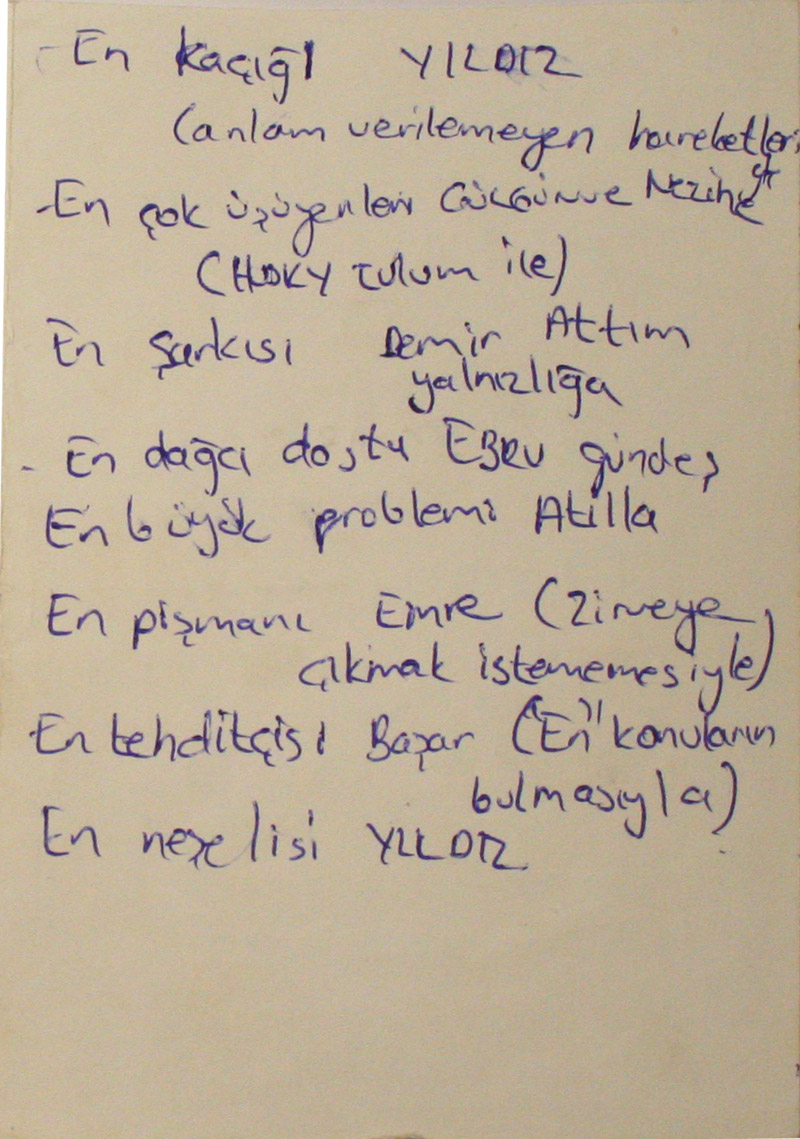 - En kaçığı YILDIZ
(anlam verilemeyen hareketleri
- En çok üşüyenleri Gülgün ve Nezihe
(HUOKY tulum ile)
En şarkısı Demir Attım
yalnızlığa
- En dağcı dostu EBRU gündeş
En büyük problemi Atilla
En pişmanı Emre (Zirveye
çıkmak istememesiyle)
En tehditçisi Başar ("En" konuların
bulmasıyla)
En neşelisi YILDIZ